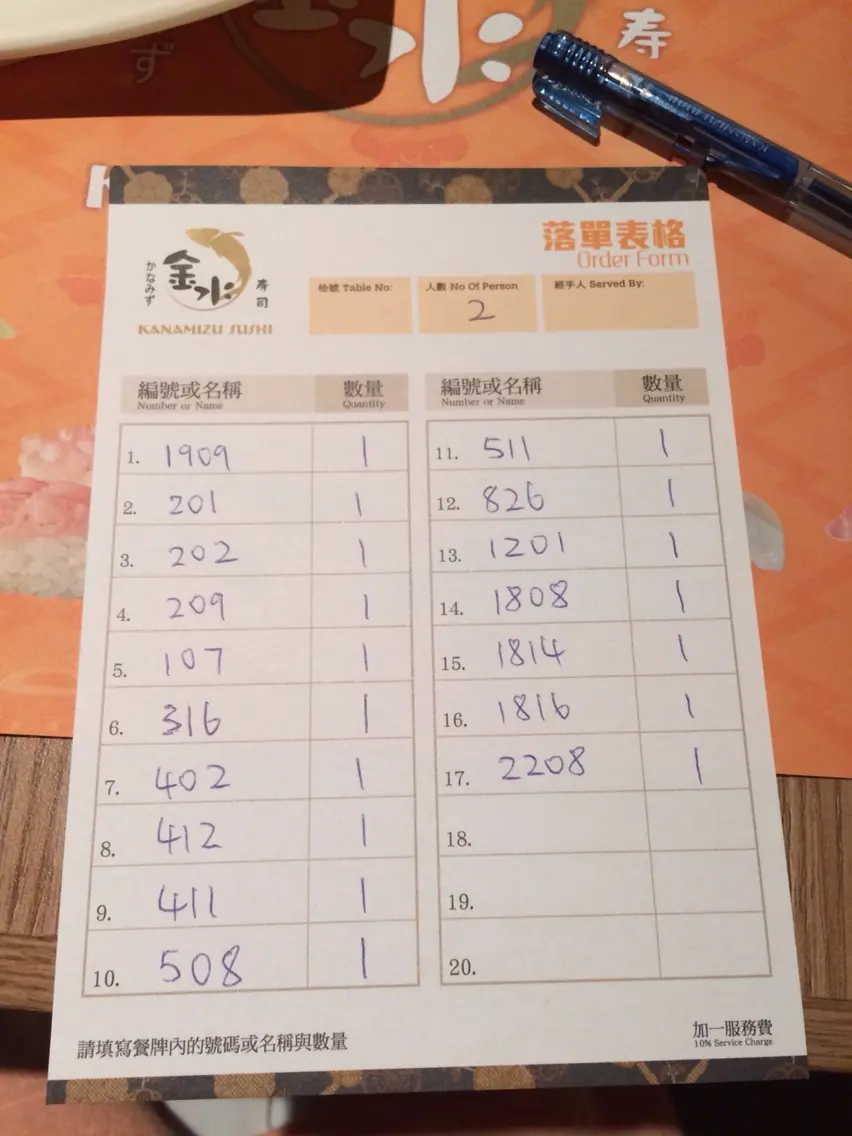 ず
水
寿
かなみず
金水
寿司
KANAMIZU SUSHI
落單表格
Order Form
枱號 Table No:
人數 No Of Person
2
經手人 Served By:
編號或名稱 數量
Number or Name Quantity
1. 1909 1
2. 201 1
3. 202 1
4. 209 1
5. 107 1
6. 316 1
7. 402 1
8. 412 1
9. 411 1
10. 508 1
編號或名稱 數量
Number or Name Quantity
11. 511 1
12. 826 1
13. 1201 1
14. 1808 1
15. 1814 1
16. 1816 1
17. 2208 1
18.
19.
20.
請填寫餐牌內的號碼或名稱與數量
加一服務費
10% Service Charge